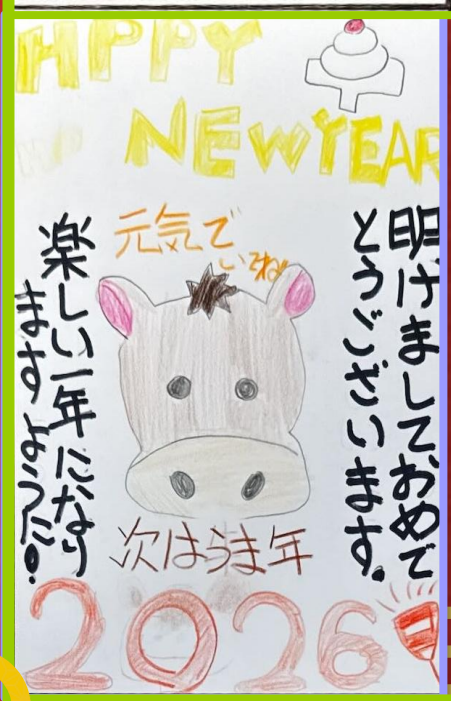 HPPY
NEWYEAR
明けましておめで
とうございます。
元気で
いてね
楽しい一年になり
ますように!
次はうま年
2026